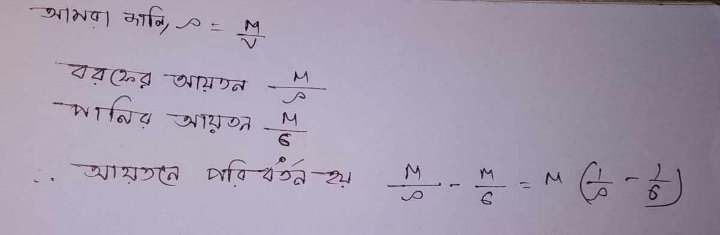 আমরা জানি, ρ = M/V
বরফের আয়তন M/ρ
পানির আয়তন M/6
∴ আয়তনে পরিবর্তন হয় M/ρ - M/6 = M (1/ρ - 1/6)